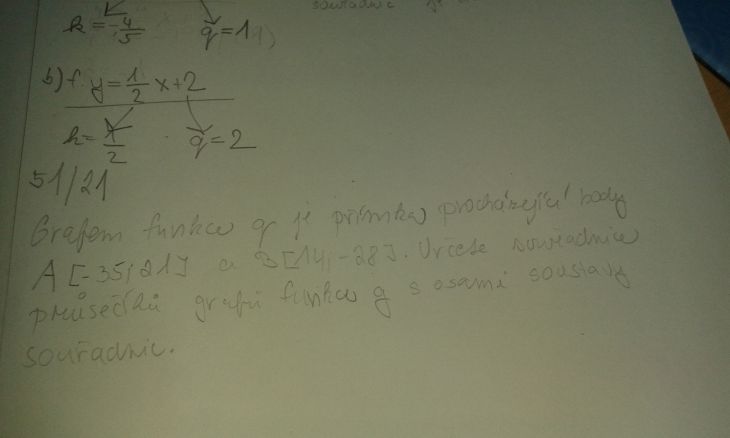 souřadnic
k = -4/5 q = 1
b) f: y = 1/2 x + 2
k = 1/2 q = 2
51/21
Grafem funkce g je přímka procházející body
A[-35; 21] a B[14; -28]. Určete souřadnice
průsečíků grafu funkce g s osami soustavy
souřadnic.